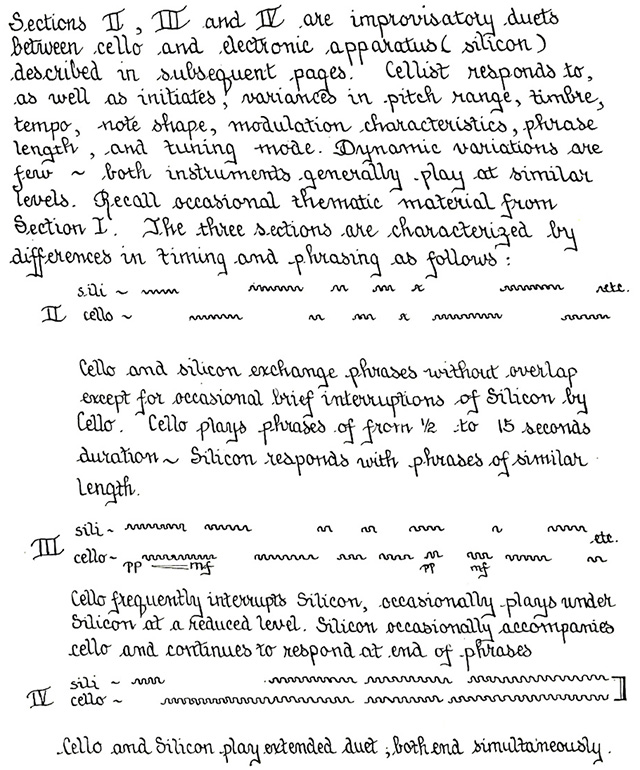 Sections II, III and IV are improvisatory duets
between cello and electronic apparatus (silicon)
described in subsequent pages. Cellist responds to,
as well as initiates, variances in pitch range, timbre,
tempo, note shape, modulation characteristics, phrase
length, and tuning mode. Dynamic variations are
few ~ both instruments generally play at similar
levels. Recall occasional thematic material from
Section I. The three sections are characterized by
differences in timing and phrasing as follows:
sili ~ etc.
II cello ~
Cello and silicon exchange phrases without overlap
except for occasional brief interruptions of Silicon by
Cello. Cello plays phrases of from 1/2 to 15 seconds
duration ~ Silicon responds with phrases of similar
length.
sili ~ etc.
III cello ~
pp mf pp mf
Cello frequently interrupts Silicon, occasionally plays under
Silicon at a reduced level. Silicon occasionally accompanies
cello and continues to respond at end of phrases
sili ~
IV cello ~
Cello and Silicon play extended duet; both end simultaneously.